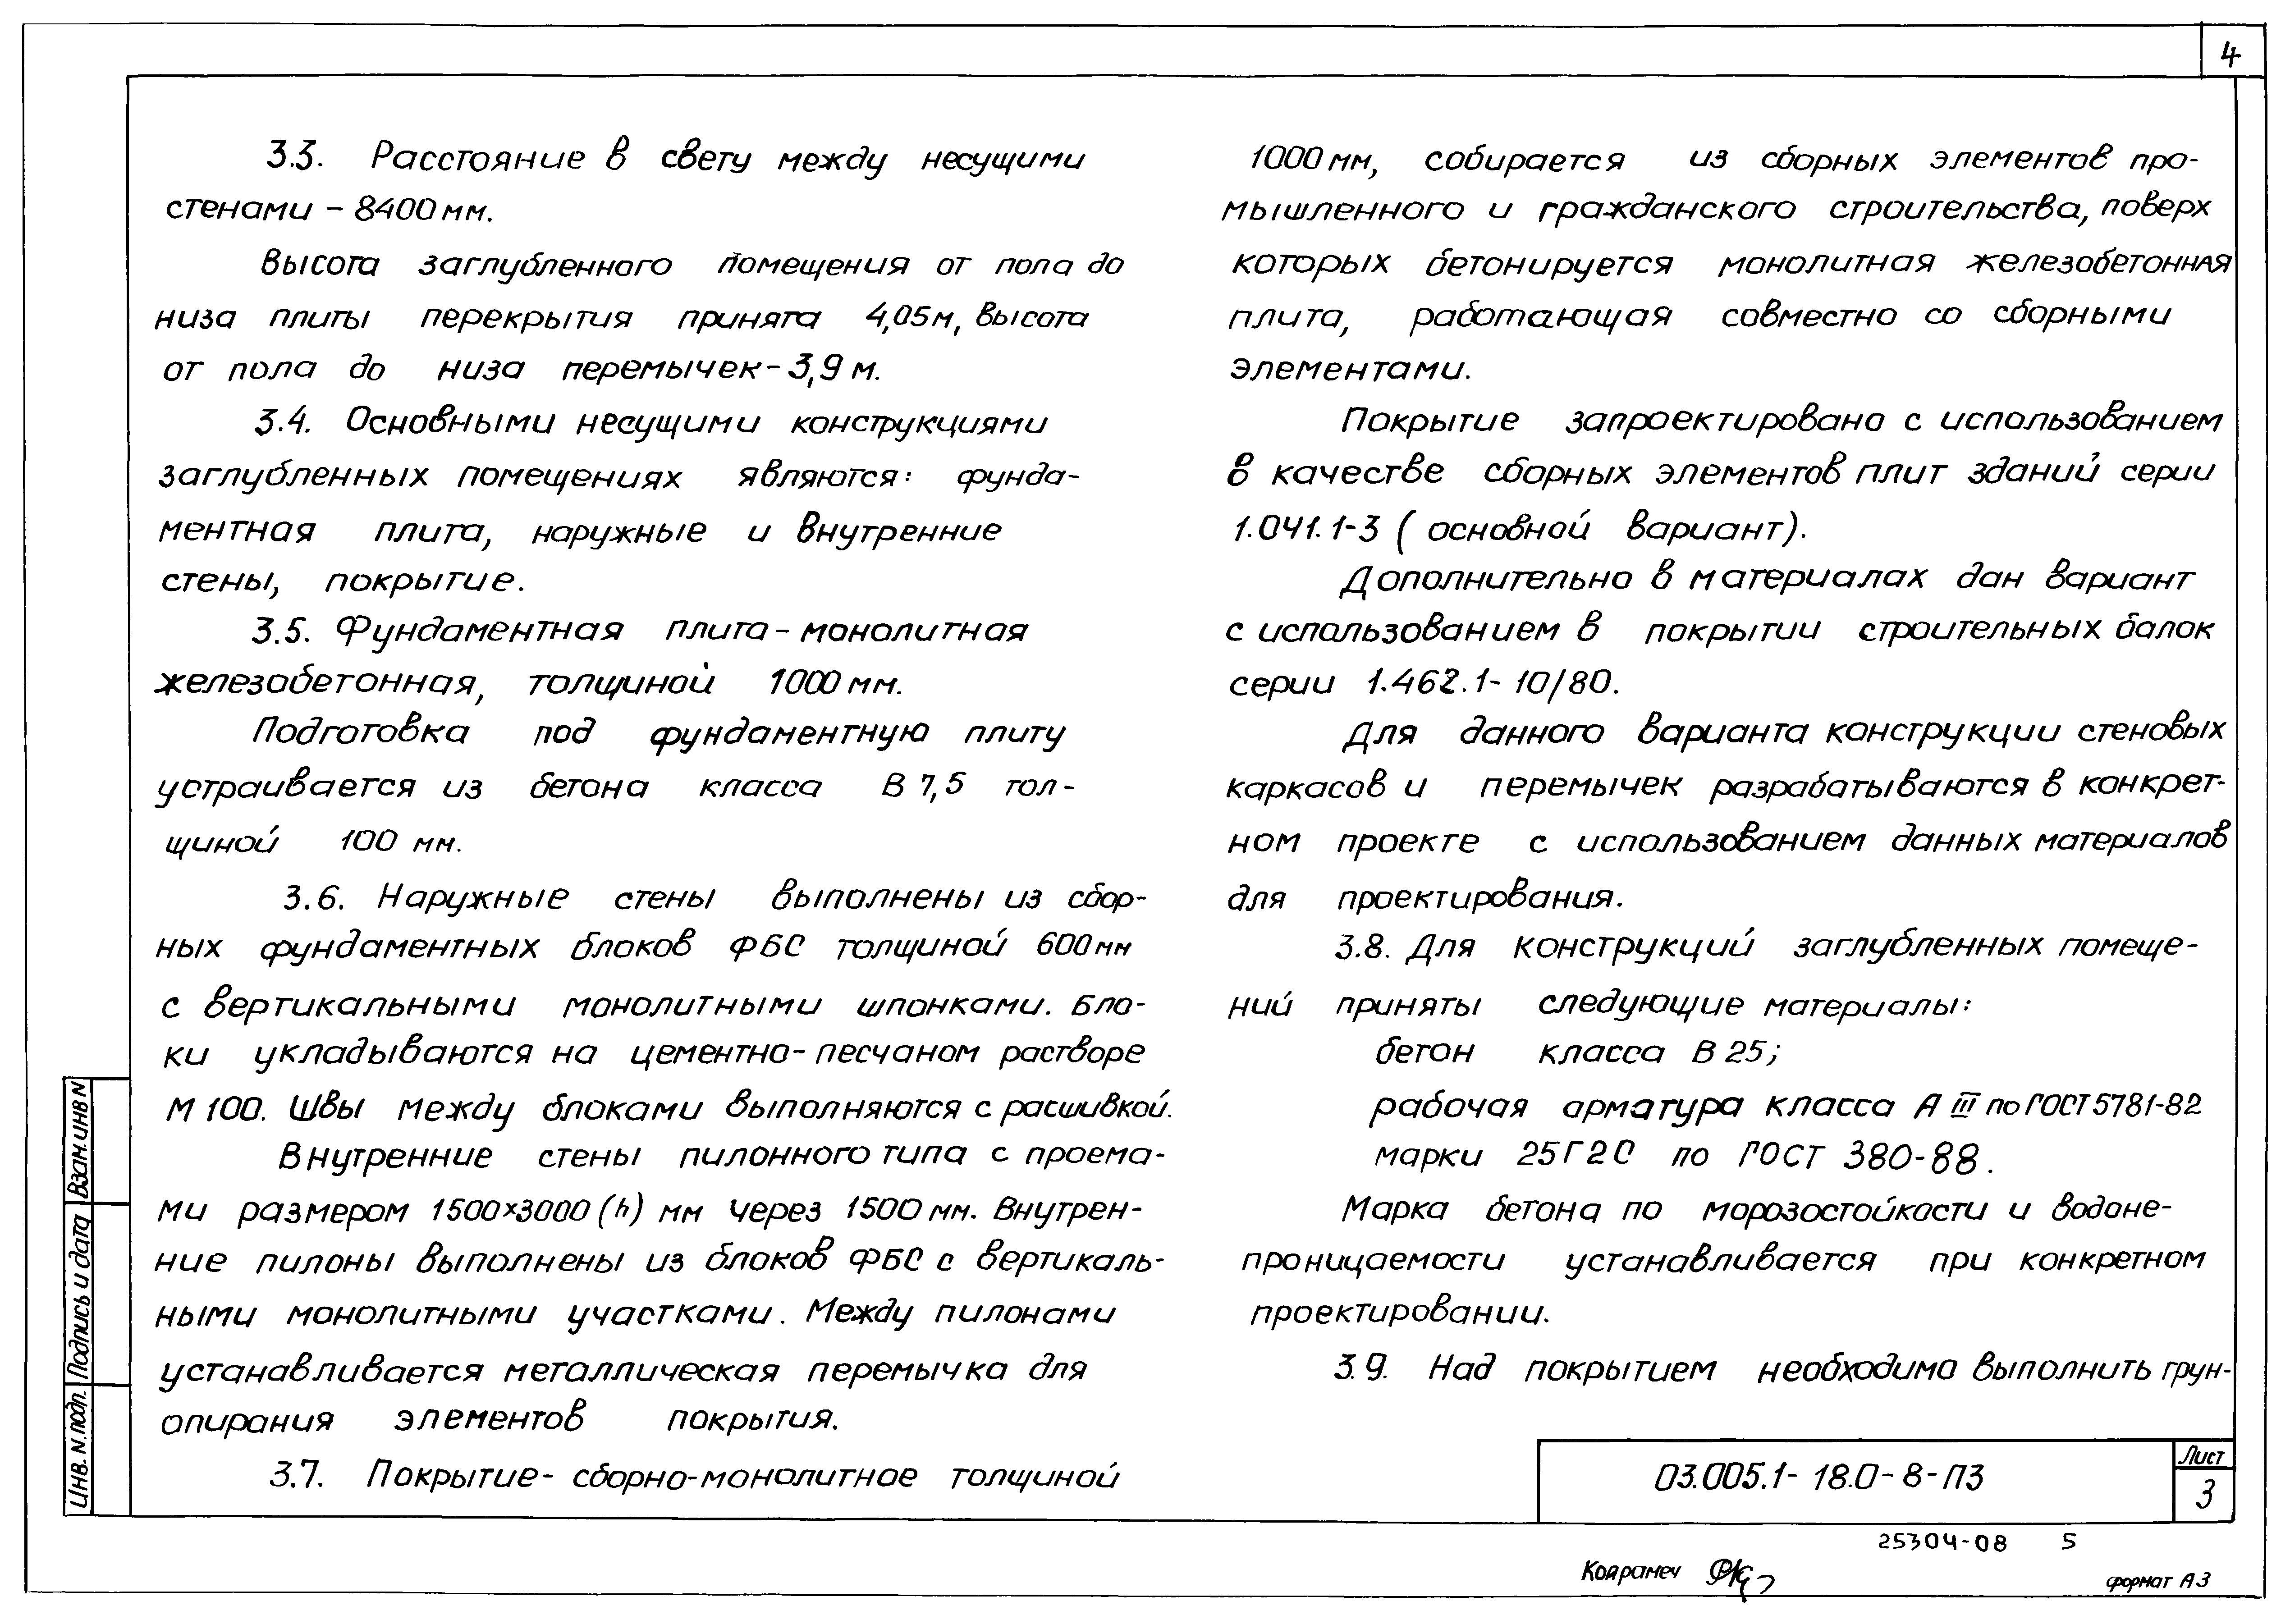 4
3.3. Расстояние в свету между несущими
стенами - 8400 мм.
Высота заглубленного помещения от пола до
низа плиты перекрытия принята 4,05 м, высота
от пола до низа перемычек - 3,9 м.
3.4. Основными несущими конструкциями
заглубленных помещениях являются: фунда-
ментная плита, наружные и внутренние
стены, покрытие.
3.5. Фундаментная плита - монолитная
железобетонная, толщиной 1000 мм.
Подготовка под фундаментную плиту
устраивается из бетона класса В 7,5 тол-
щиной 100 мм.
3.6. Наружные стены выполнены из сбор-
ных фундаментных блоков ФБС толщиной 600 мм
с вертикальными монолитными шпонками. Бло-
ки укладываются на цементно-песчаном растворе
М 100. Швы между блоками выполняются с расшивкой.
Внутренние стены пилонного типа с проема-
ми размером 1500×3000 (h) мм через 1500 мм. Внутрен-
ние пилоны выполнены из блоков ФБС с вертикаль-
ными монолитными участками. Между пилонами
устанавливается металлическая перемычка для
опирания элементов покрытия.
3.7. Покрытие - сборно-монолитное толщиной
1000 мм, собирается из сборных элементов про-
мышленного и гражданского строительства, поверх
которых бетонируется монолитная железобетонная
плита, работающая совместно со сборными
элементами.
Покрытие запроектировано с использованием
в качестве сборных элементов плит зданий серии
1.041.1-3 (основной вариант).
Дополнительно в материалах дан вариант
с использованием в покрытии строительных балок
серии 1.462.1-10/80.
Для данного варианта конструкции стеновых
каркасов и перемычек разрабатываются в конкрет-
ном проекте с использованием данных материалов
для проектирования.
3.8. Для конструкций заглубленных помеще-
ний приняты следующие материалы:
бетон класса В 25;
рабочая арматура класса А III по ГОСТ 5781-82
марки 25Г2С по ГОСТ 380-88.
Марка бетона по морозостойкости и водоне-
проницаемости устанавливается при конкретном
проектировании.
3.9. Над покрытием необходимо выполнить грун-
Инв. N. подл. Подпись и дата Взам. инв N
03.005.1-18.0-8-ПЗ
Лист
3
25304-08 5
формат А3